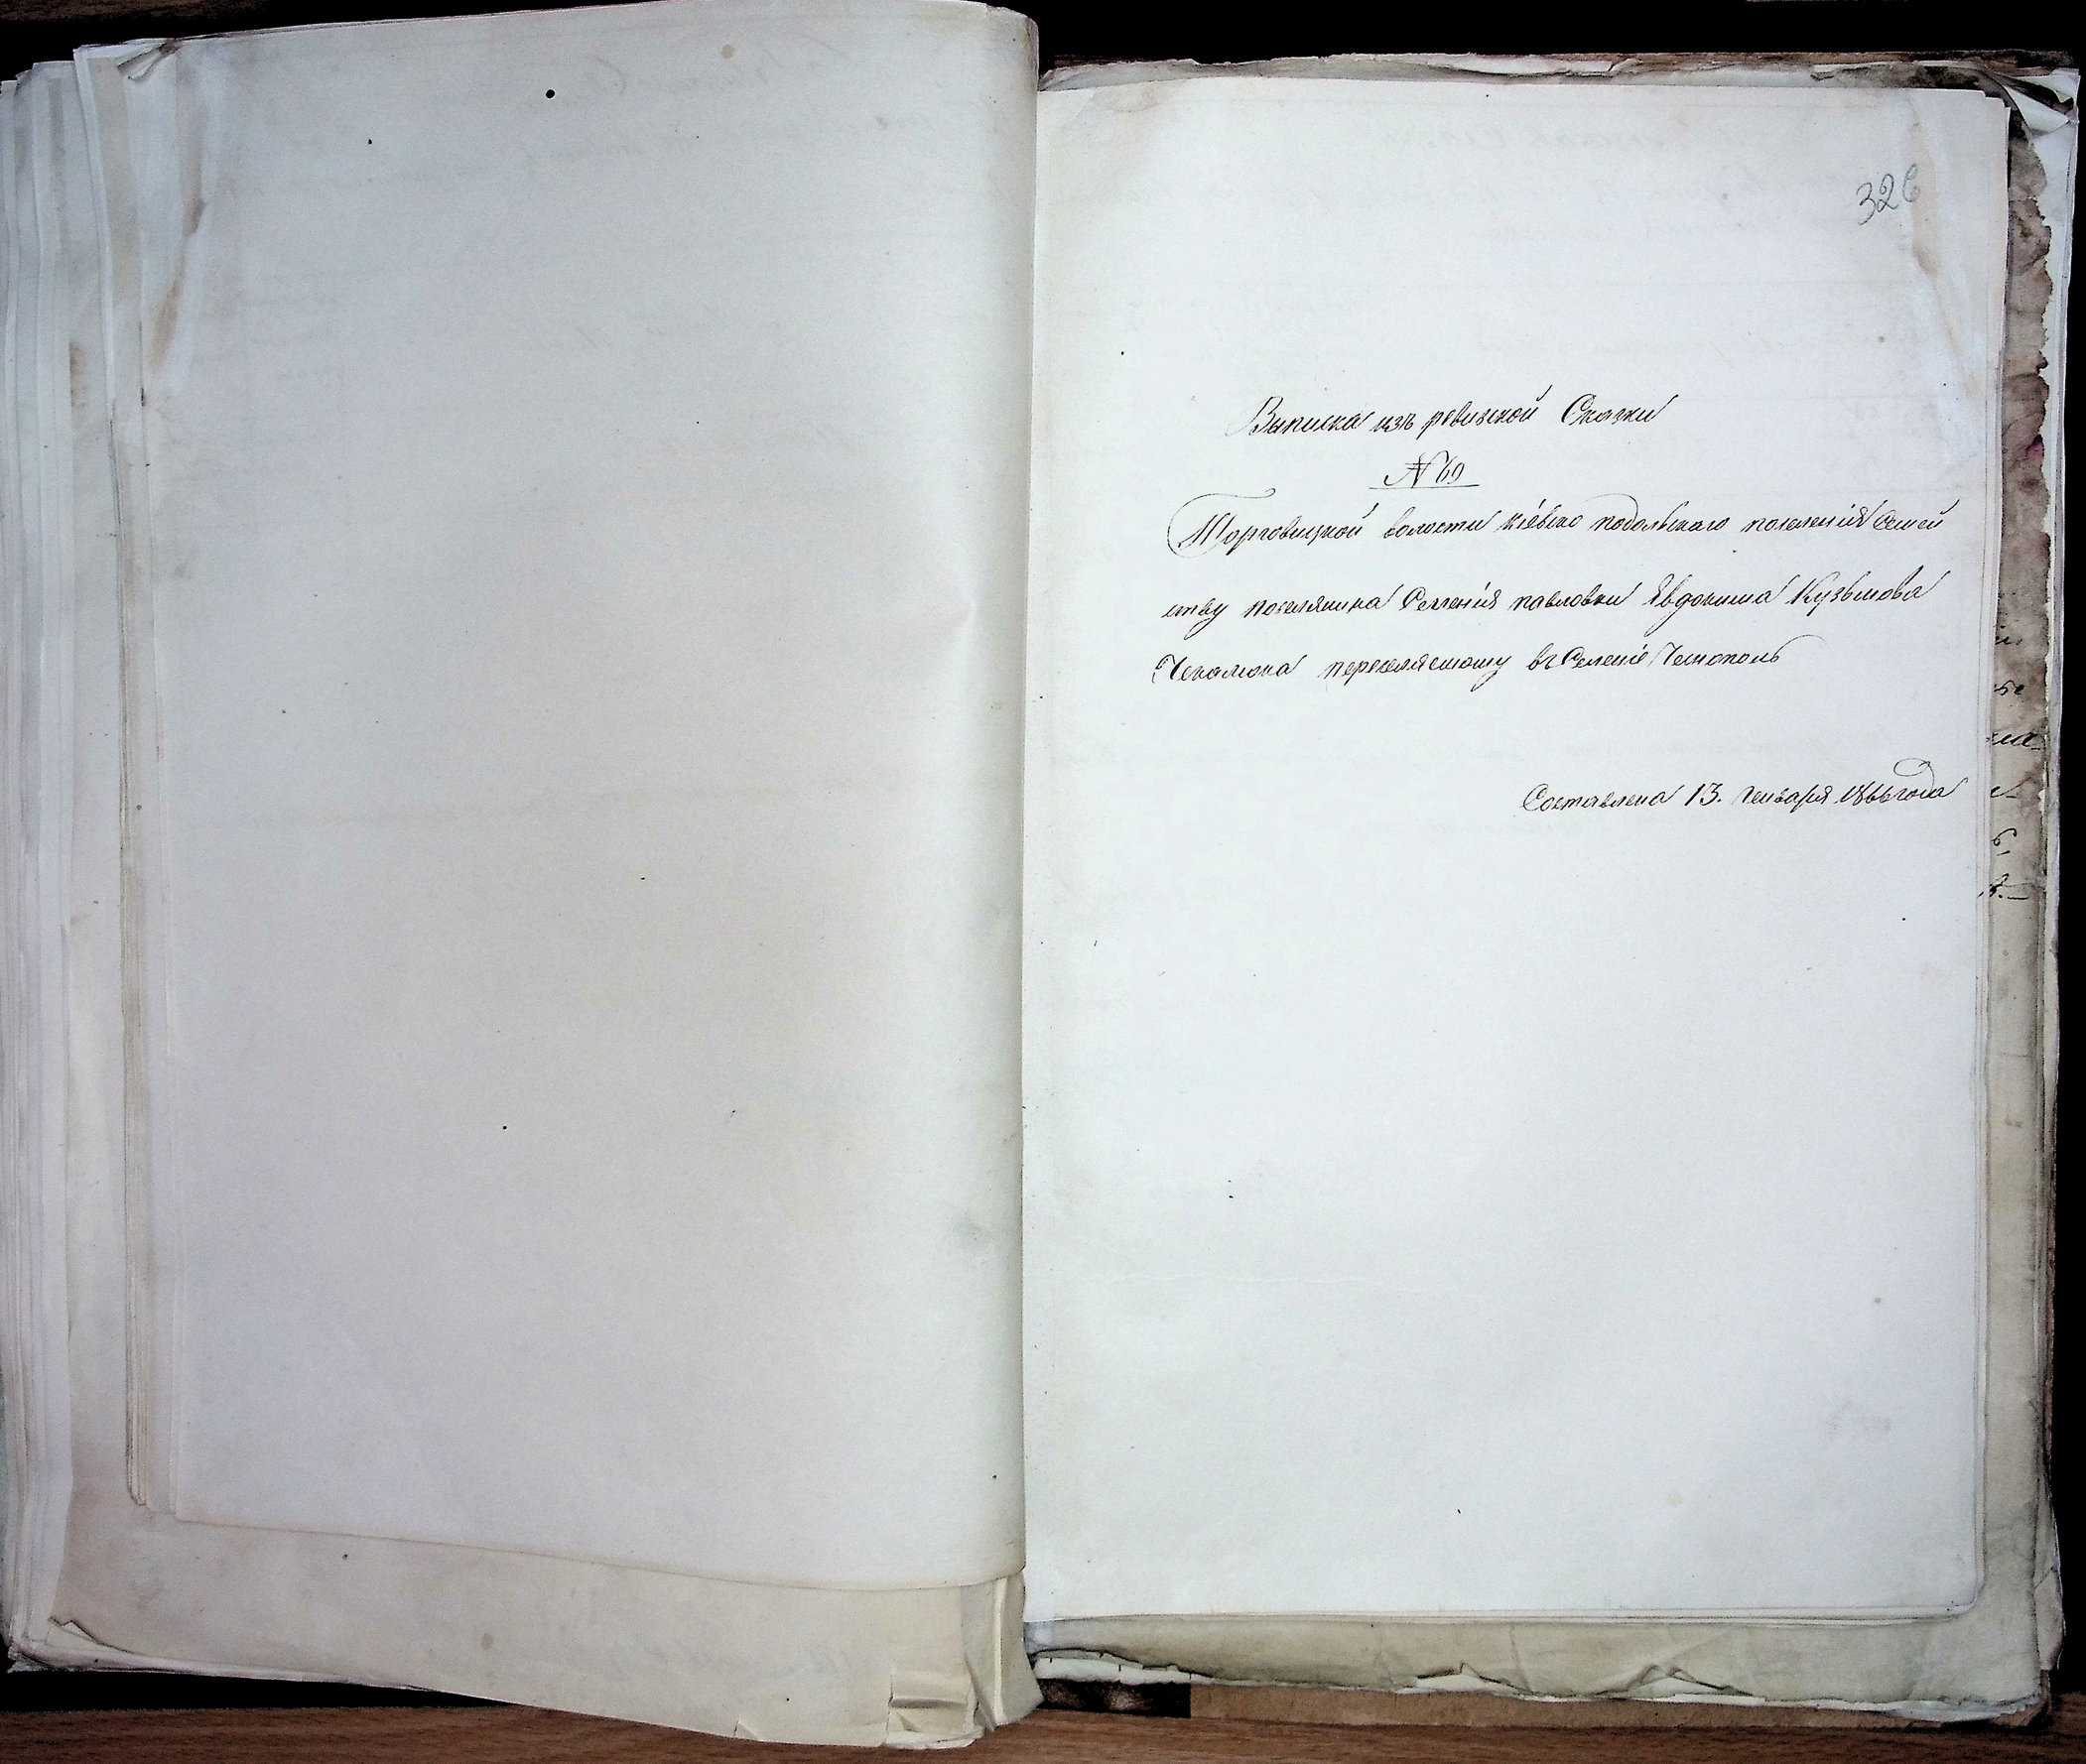 326
Выписка изъ ревизской Сказки
№ 69
Торговицкой волости кіевско подольскаго поселенія Семей
ству поселянина Селенія павловки Явдокима Кузьмова
Чекалюка переселяемому въ Селеніе
Составлена 13. Генваря 1866 года